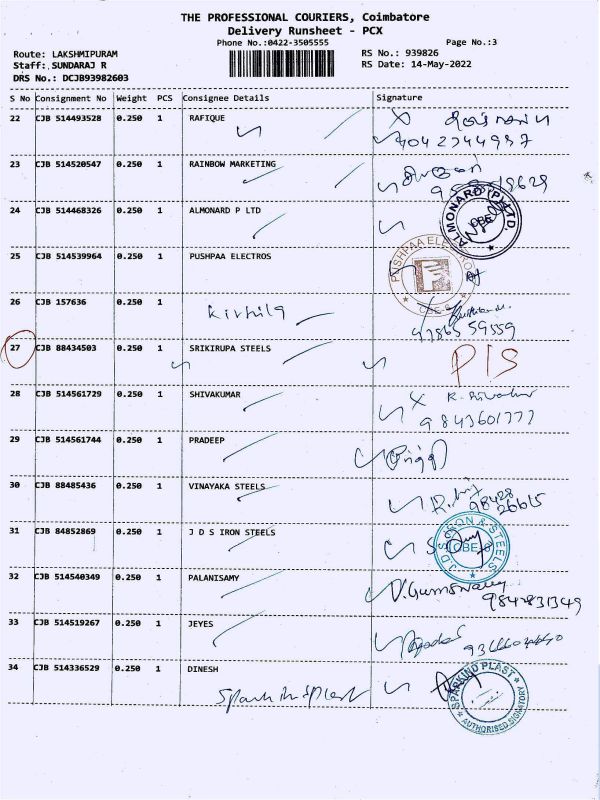 THE PROFESSIONAL COURIERS, Coimbatore
Delivery Runsheet - PCX
Phone No.:0422-3505555
Page No.:3
Route: LAKSHMIPURAM
RS No.: 939826
Staff: SUNDARAJ R
RS Date: 14-May-2022
DRS No.: DCJB93982603
S No Consignment No Weight PCS Consignee Details Signature
22 CJB 514493528 0.250 1 RAFIQUE
23 CJB 514520547 0.250 1 RAINBOW MARKETING
24 CJB 514468326 0.250 1 ALMONARD P LTD
ALMONARD (P) LTD.
CBE
25 CJB 539964 0.250 1 PUSHPAA ELECTROS
PUSHPAA ELECTRO
CBE-9
26 CJB 157636 0.250 1
97865 59559
27 CJB 88434503 0.250 1 SRIKIRUPA STEELS
P/S
28 CJB 514561729 0.250 1 SHIVAKUMAR
9843601777
29 CJB 514561744 0.250 1 PRADEEP
30 CJB 88485436 0.250 1 VINAYAKA STEELS
98428
26615
31 CJB 84852869 0.250 1 J D S IRON STEELS
J.D.S IRON & STEELS
CBE
32 CJB 514540349 0.250 1 PALANISAMY
9842831349
33 CJB 514519267 0.250 1 JEYES
34 CJB 514336529 0.250 1 DINESH
SPARKIND PLAST
AUTHORISED SIGNATORY